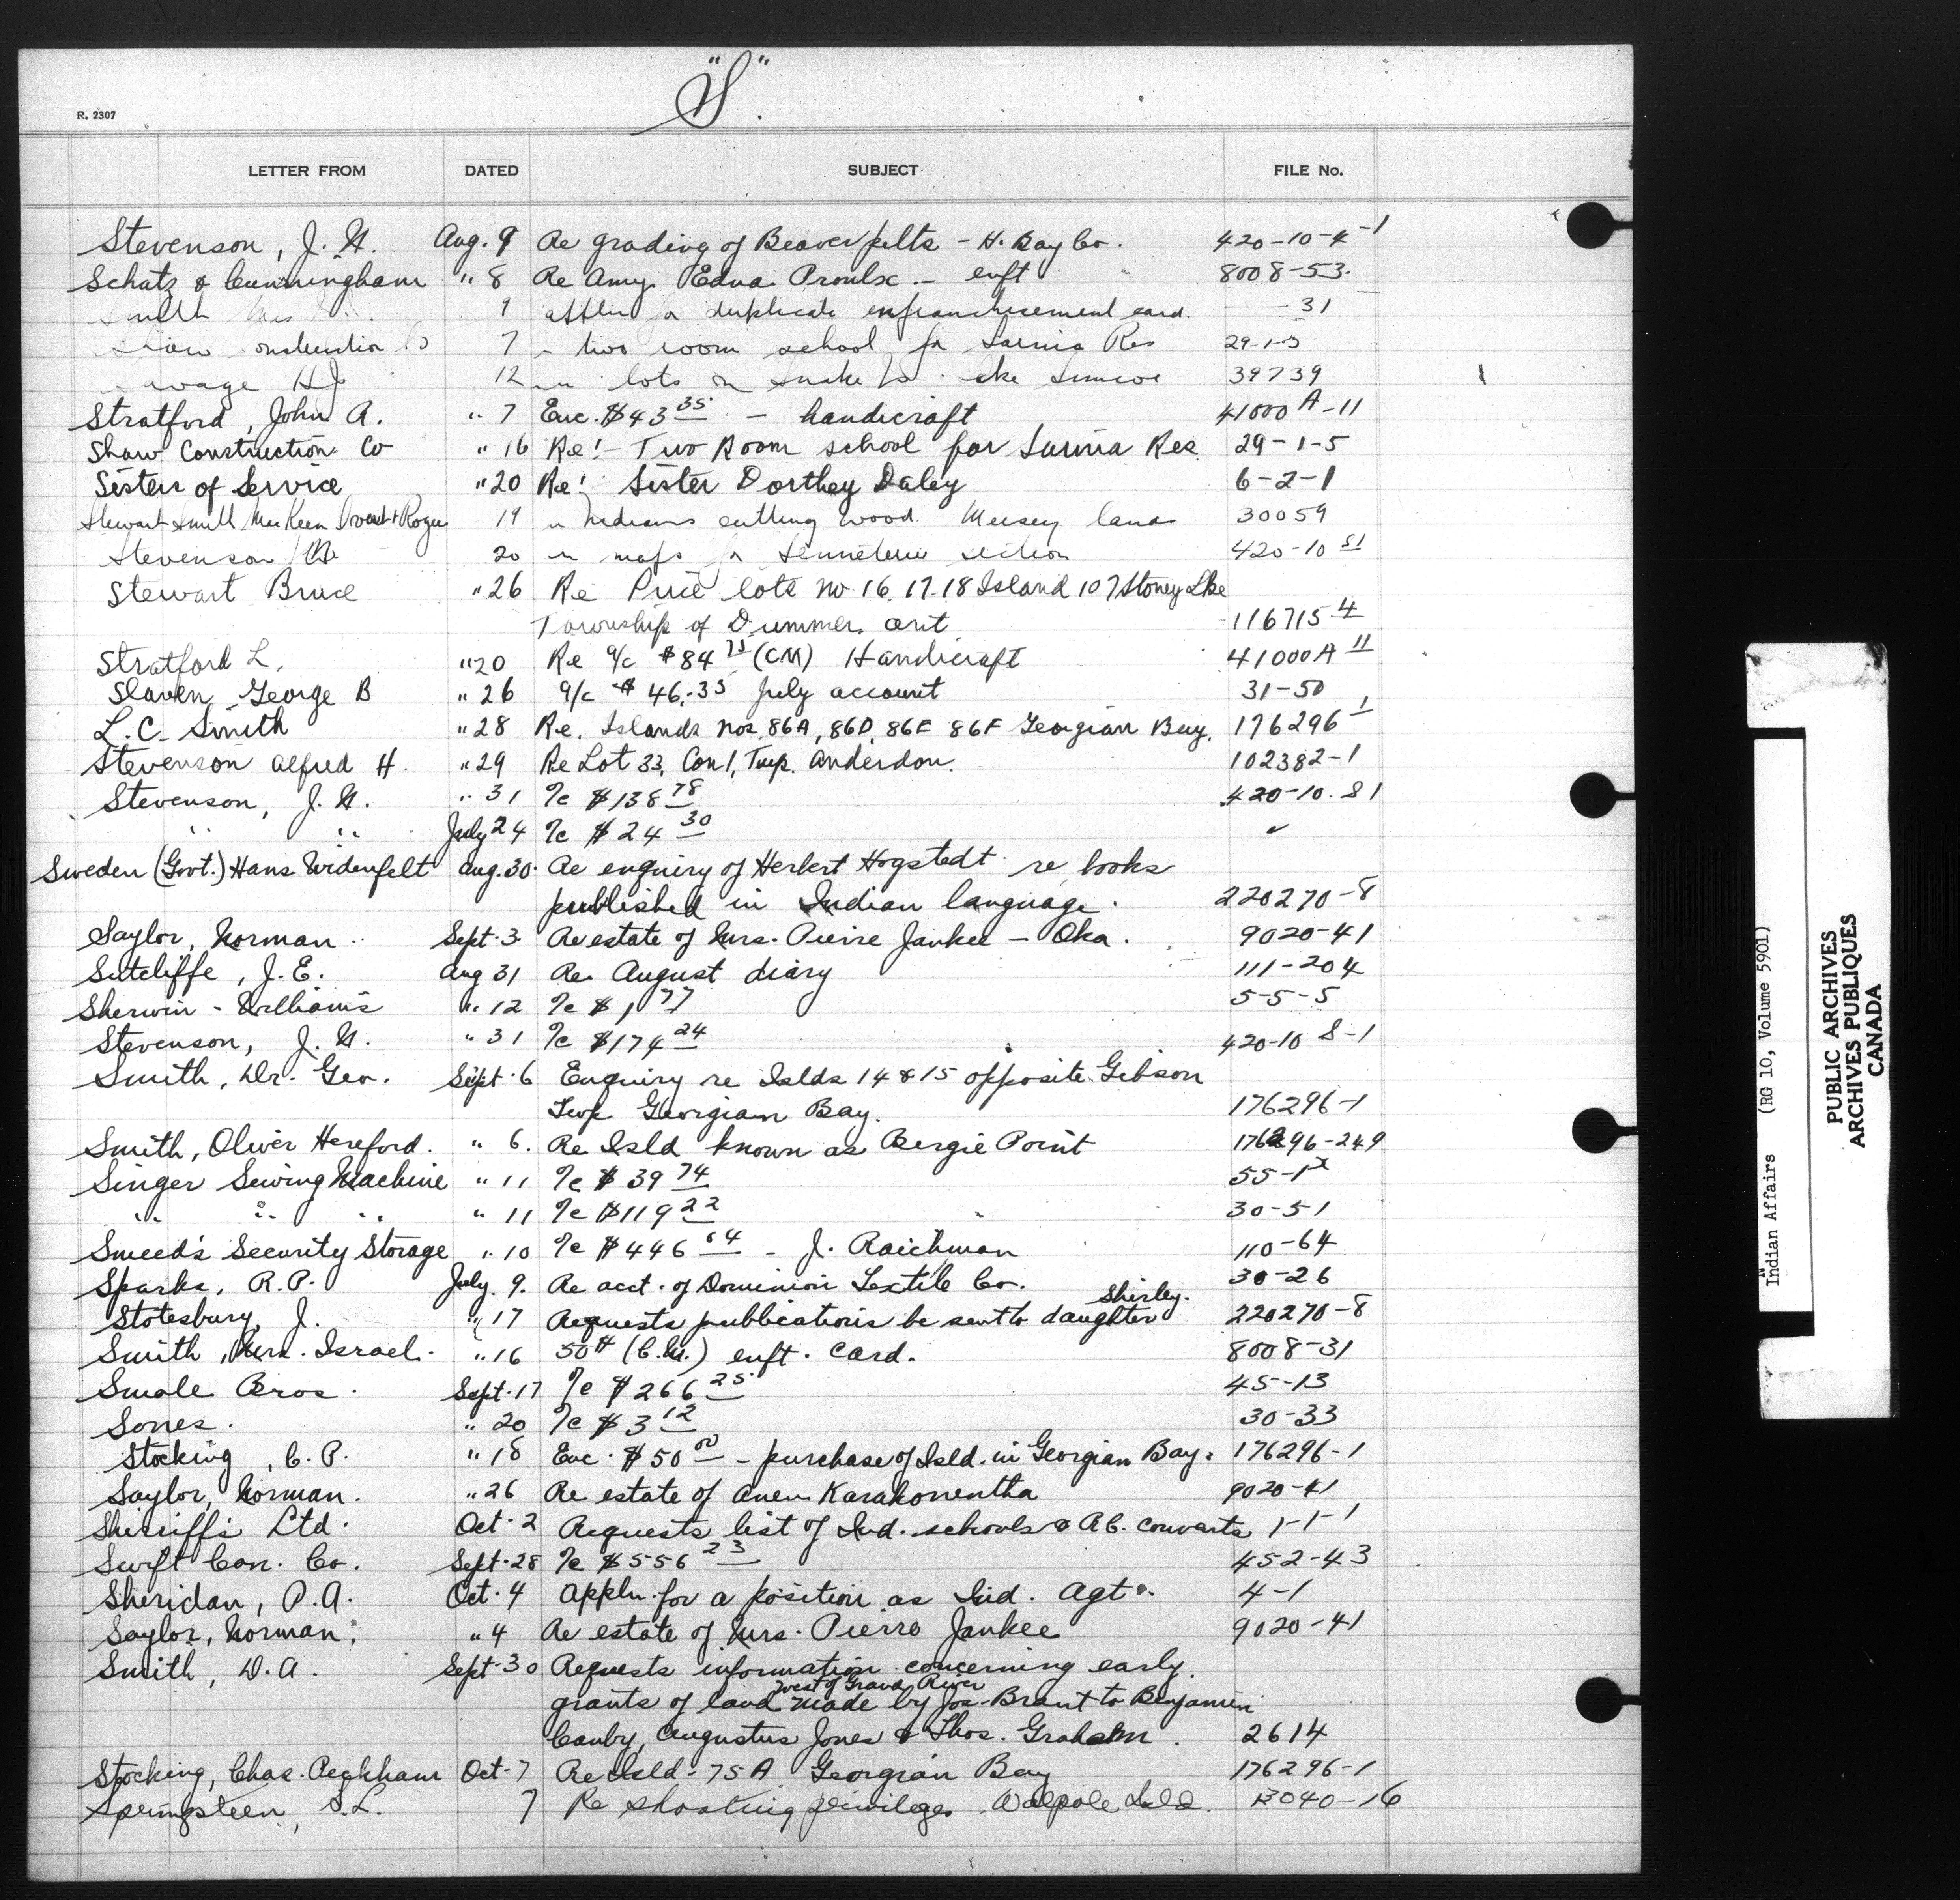 "S".
R. 2307
LETTER FROM DATED SUBJECT FILE No.
Stevenson, J. W. Aug. 9 Re grading of Beaver pelts - H. Bay Co. 420-10-4-1
Schatz & Cunningham " 8 Re Amy Edna Proulx - enft 8008-53
Smith Mrs 9 duplicate enfranchisement card. 31
Construction Co 7 " two room school for Sarnia Res 29-1-5
Savage HJ 12 " lots on Snake Lake Simcoe 39739
Stratford, John A. " 7 Enc. $43 35 - handicraft 41000 A-11
Shaw Construction Co " 16 Re:- Two Room school for Sarnia Res 29-1-5
Sisters of Service " 20 Re: Sister Dorthey Daley 6-2-1
Stewart Smith MacKeen & Rogers 19 " Indians cutting wood Mersey lands 30059
Stevenson 20 " maps for Senneterre section 420-10 S1
Stewart Bruce " 26 Re Price lots no 16, 17, 18 Island 107 Stoney Lke
Township of Dummer Ont 116715-4
Stratford L. " 20 Re a/c $84 75 (CM) Handicraft 41000A 11
Slaven, George B " 26 a/c $46.35 July account 31-50
L. C. Smith " 28 Re. Islands Nos. 86A, 86D, 86E 86F Georgian Bay. 176296-1
Stevenson Alfred H. " 29 Re Lot 33, Con 1, Twp. Anderdon. 102382-1
Stevenson, J. W. " 31 a/c $138 78 420-10-S1
" " July 24 a/c $24 30 ✓
Sweden (Govt.) Hans Widenfelt Aug. 30 Re enquiry of Herbert Hogstedt re books
published in Indian language. 220270-8
Saylor, Norman Sept. 3 Re estate of Mrs. Pierre Jankee - Oka. 9020-41
Sutcliffe, J. E. Aug 31 Re August diary 111-204
Sherwin-Williams " 12 a/c $1 77 5-5-5
Stevenson, J. W. " 31 a/c $174 24 420-10 S-1
Smith, Dr. Geo. Sept. 6 Enquiry re Islds 14 & 15 opposite Gibson
Twp Georgian Bay. 176296-1
Smith, Oliver Hereford. " 6. Re Isld known as Bergie Point 176296-249
Singer Sewing Machine " 11 a/c $39 74 55-1
" " " " 11 a/c $119 22 30-51
Smeed's Security Storage " 10 a/c $446 64 - J. Raichman 110-64
Sparks, R. P. July. 9. Re acct. of Dominion Textile Co. 30-26
Stotesbury, J. " 17 Requests publications be sent to daughter Shirley. 220270-8
Smith, Mrs. Israel. " 16 50¢ (C.M.) enft. Card. 8008-31
Smale Bros. Sept. 17 a/c $266 25 45-13
Sones. " 20 a/c $3 12 30-33
Stocking, C. P. " 18 Enc. $50 00 - purchase of Isld. in Georgian Bay. 176296-1
Saylor, Norman. " 26 Re estate of Anen Karahonentha 9020-41
Sherriff's Ltd. Oct. 2 Requests list of Ind. schools & R.C. convents 1-1-1
Swift Can. Co. Sept. 28 a/c $556 23 452-43
Sheridan, P. A. Oct. 4 Appln. for a position as Ind. Agt. 4-1
Saylor, Norman. " 4 Re estate of Mrs. Pierre Jankee 9020-41
Smith, D. A. Sept. 30 Requests information concerning early
grants of land west of Grand River made by Jos. Brant to Benjamin
Canby, Augustus Jones & Thos. Graham. 2614
Stocking, Chas. Peckham Oct. 7 Re Isld. 75A Georgian Bay 176296-1
Springsteen, S. L. 7 Re shooting privileges Walpole Isld. 13040-16
Indian Affairs (RG 10, Volume 5901)
PUBLIC ARCHIVES
ARCHIVES PUBLIQUES
CANADA